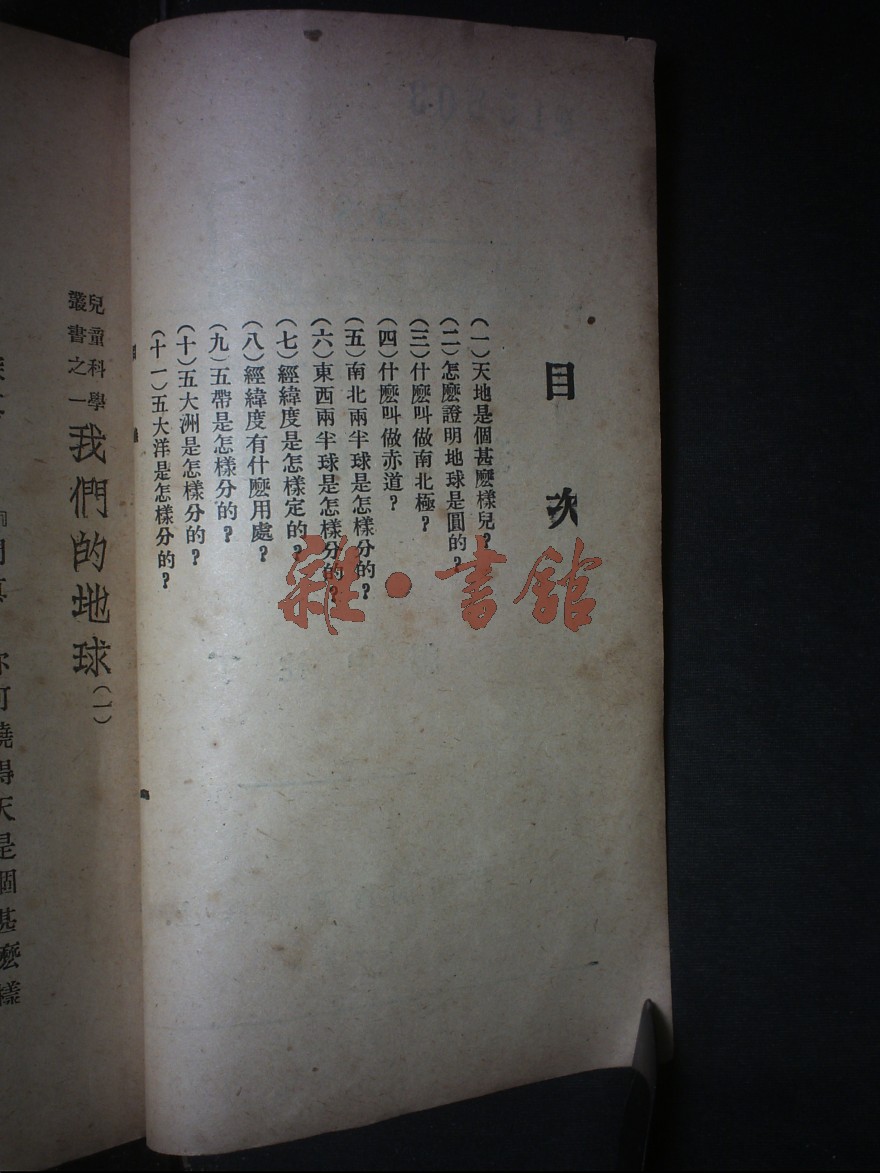 目次
(一)天地是個甚麽樣兒?
(二)怎麽證明地球是圓的?
(三)什麽叫做南北極?
(四)什麽叫做赤道?
(五)南北兩半球是怎樣分的?
(六)東西兩半球是怎樣分的?
(七)經緯度是怎樣定的?
(八)經緯度有什麽用處?
(九)五帶是怎樣分的?
(十)五大洲是怎樣分的?
(十一)五大洋是怎樣分的?
雜·書館
兒童科學
叢書之一
我們的地球(一)
你可曉得天是個甚麽樣